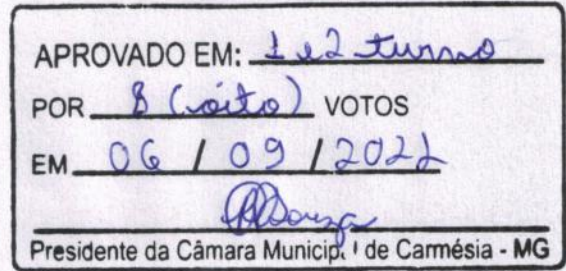 APROVADO EM: 1 e 2 turno
POR 8 (oito) VOTOS
EM 06 / 09 / 2022
Presidente da Câmara Municipal de Carmésia - MG